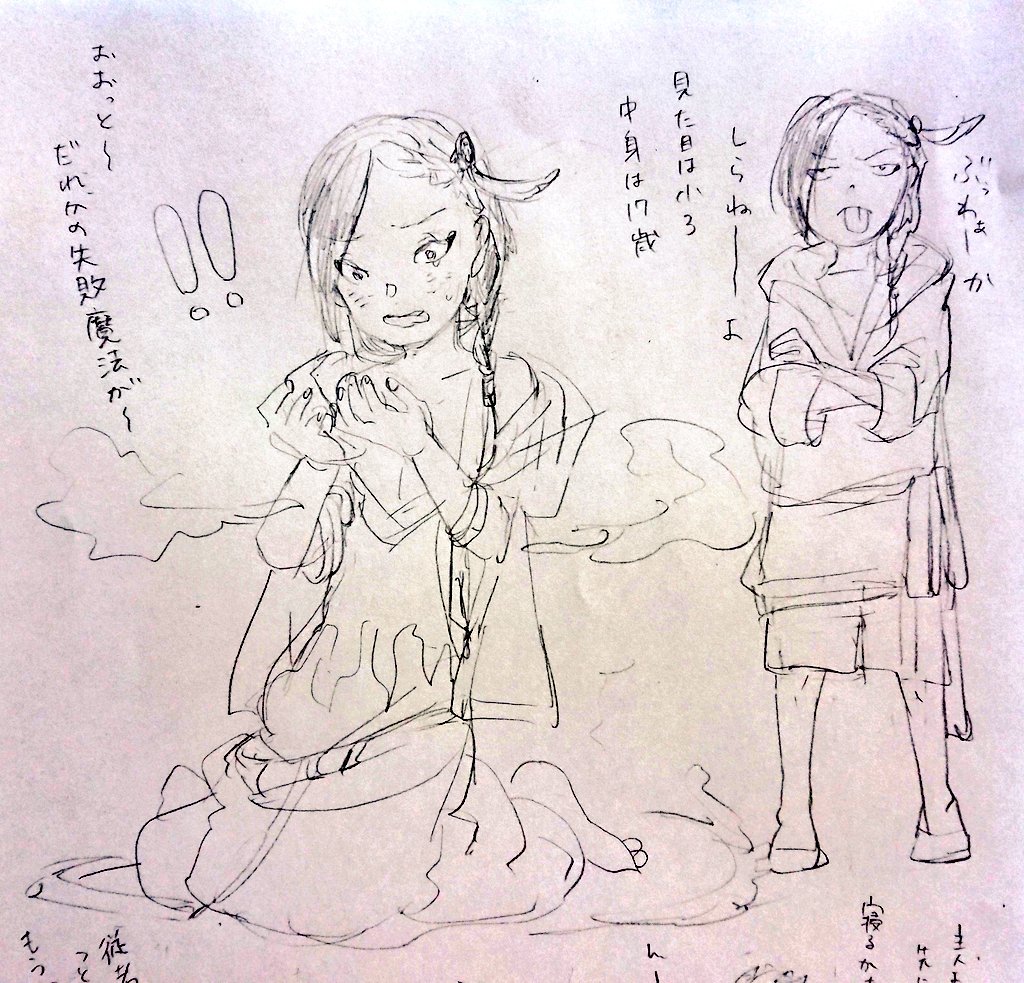 ぶっわぁーか
しらねーーよ
見た目は小3
中身は17歳
!!
おおっと〜
だれかの失敗魔法が〜
寝るか
従者
もう
んー